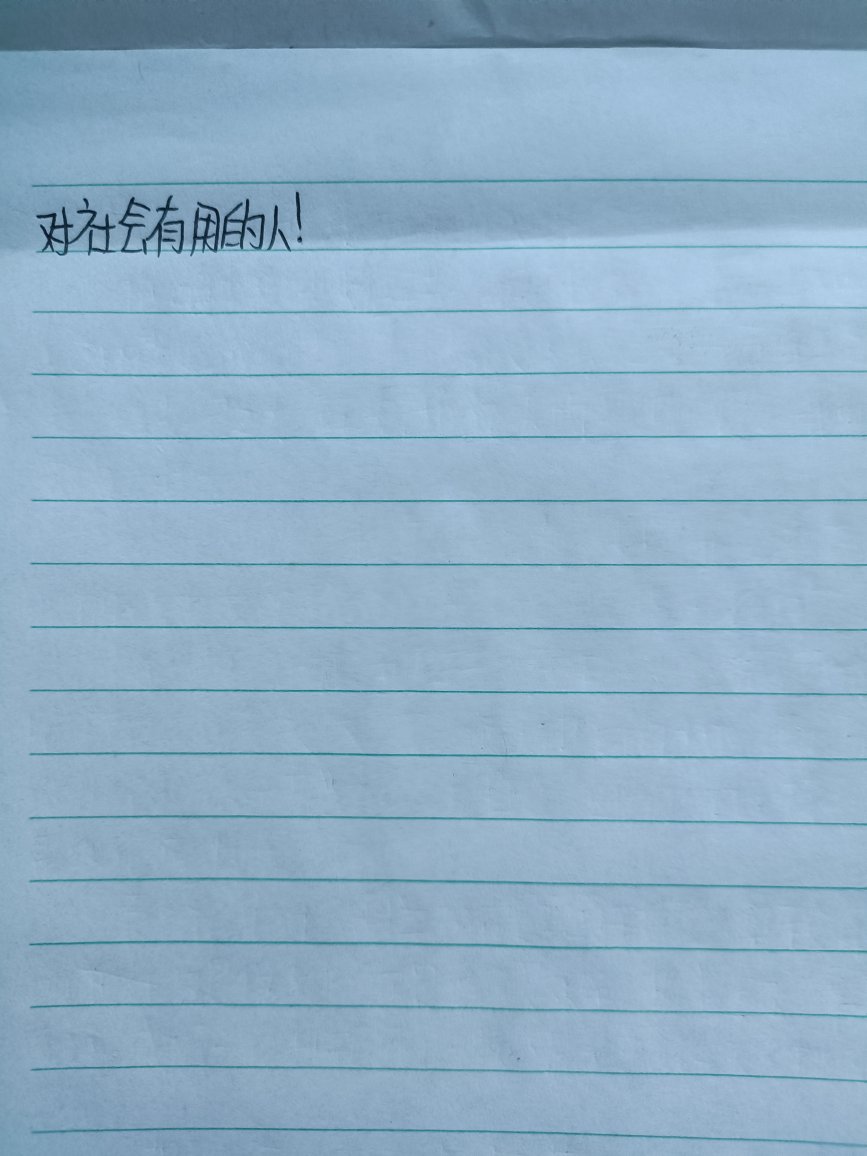 对社会有用的人!